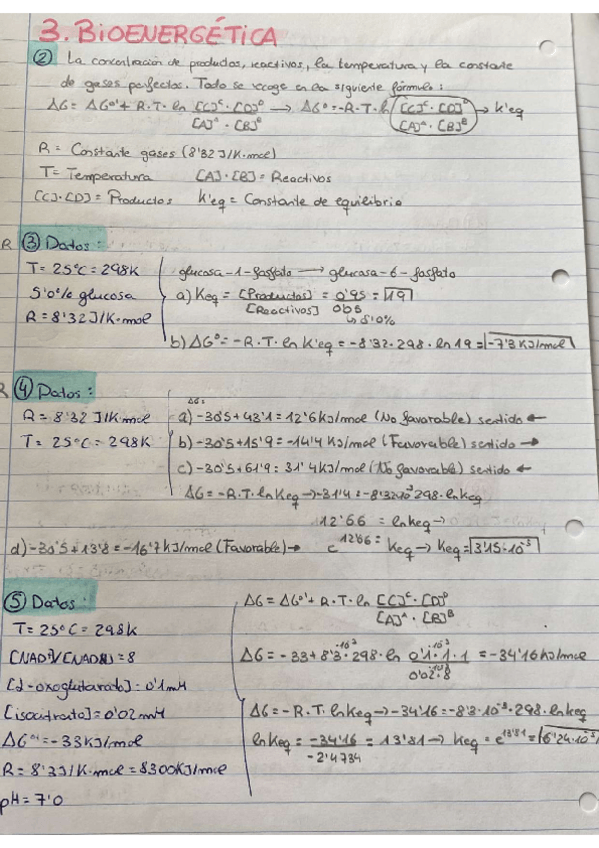 3. BIOENERGÉTICA
② La concentración de productos, reactivos, la temperatura y la constante
de gases perfectos. Todo se recoge en la siguiente fórmula:
ΔG = ΔG°' + R·T·ln [C]ᶜ·[D]ᴰ / [A]ᴬ·[B]ᴮ → ΔG° = -R·T·ln [C]ᶜ·[D]ᴰ / [A]ᴬ·[B]ᴮ → K'eq
R = Constante gases (8'32 J/K·mol)
T = Temperatura [A]·[B] = Reactivos
[C]·[D] = Productos K'eq = Constante de equilibrio
R ③ Datos:
T = 25°C = 298K
5'0% glucosa
R = 8'32 J/K·mol
glucosa-1-fosfato → glucosa-6-fosfato
a) Keq = [Productos] / [Reactivos] = 0'95 / 0'05 = 19
↳ 5'0%
b) ΔG° = -R·T·ln K'eq = -8'32·298·ln 19 = -7'3 KJ/mol
R ④ Datos:
R = 8'32 J/K·mol
T = 25°C = 298K
ΔG:
a) -30'5 + 43'1 = 12'6 kJ/mol (No favorable) sentido ←
b) -30'5 + 15'9 = -14'4 KJ/mol (Favorable) sentido →
c) -30'5 + 61'9 = 31'4 kJ/mol (No favorable) sentido ←
ΔG = -R·T·ln Keq → -31'4 = -8'32·10⁻³·298·ln Keq
12'66 = ln Keq →
e^12'66 = Keq → Keq = 3'15·10⁻⁵
d) -30'5 + 13'8 = -16'7 kJ/mol (Favorable) →
⑤ Datos:
T = 25°C = 298K
[NAD⁺]/[NADH] = 8
[2-oxoglutarato] = 0'1 mM
[isocitrato] = 0'02 mM
ΔG°' = -33 KJ/mol
R = 8'3 J/K·mol = 8300 KJ/mol
pH = 7'0
ΔG = ΔG°' + R·T·ln [C]ᶜ·[D]ᴰ / [A]ᴬ·[B]ᴮ
ΔG = -33 + 8'3·10⁻³·298·ln 0'1·10⁻³·1·1 / 0'02·10⁻³·8 = -34'16 kJ/mol
ΔG = -R.T. ln Keq → -34'16 = -8'3·10⁻³·298·ln Keq
ln Keq = -34'16 / -2'4734 = 13'81 → Keq = e^13'81 = 6'24·10⁻⁵